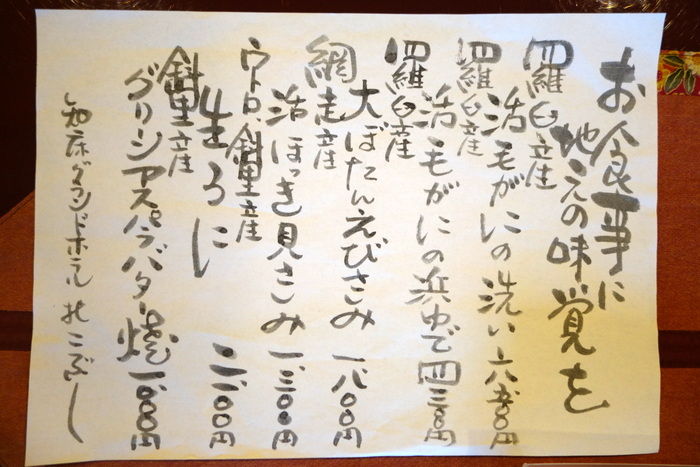 お食事に
地元の味覚を
羅臼産
活毛がにの洗い 六五〇〇円
羅臼産
活毛がにの浜ゆで 四三〇〇円
羅臼産
大ぼたんえびさしみ 一八〇〇円
網走産
活ほっき貝さしみ 一三〇〇円
ウトロ、斜里産
生うに 二一〇〇円
斜里産
グリーンアスパラバター焼 一〇〇〇円
知床グランドホテル 北こぶし